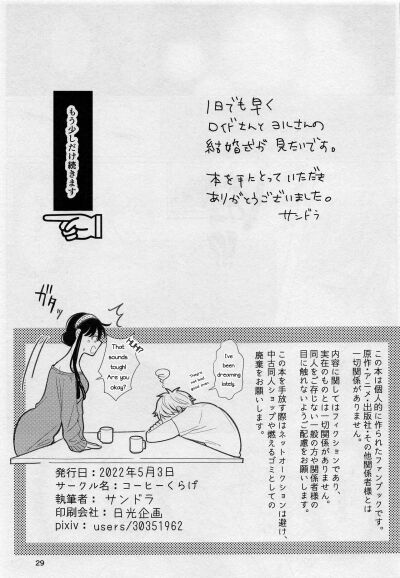 1日でも早く
ロイドさんとヨルさんの
結婚式が見たいです。
本を手にとっていただき
ありがとうございました。
サンドラ
もう少しだけ続きます
ガタッ
HUH!?
That
sounds
tough!
Are you
okay?
I've
been
dreaming
lately.
They're not
even good
ones.
この本は個人的に作られたファンブックです。
原作・アニメ・出版社・その他関係者様とは
一切関係がありません。
内容に関してはフィクションであり、
実在のものとは一切関係がありません。
同人をご存じない一般の方や関係者様の
目に触れないようご配慮をお願いします。
この本を手放す際はネットオークションは避け、
中古同人ショップや燃えるゴミとしての
廃棄をお願いします。
発行日：2022年5月3日
サークル名：コーヒーくらげ
執筆者： サンドラ
印刷会社：日光企画
pixiv： users/30351962
29